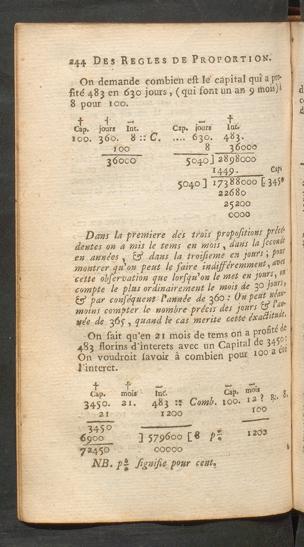 244 DES REGLES DE PROPORTION.
On demande combien est le capital qui a pro-
fité 483 en 630 jours, (qui font un an 9 mois) à
8 pour 100.
† † — — — †
Cap. jours Int. Cap. jours Int.
100. 360. 8 :: C. .... 630. 483.
100 8 36000
36000 5040] 2898000
1449. Cap.
5040] 17388000 [3450
22680
25200
0000
Dans la premiere des trois propositions précé-
dentes on a mis le tems en mois, dans la seconde
en années, & dans la troisieme en jours; pour
montrer qu'on peut le faire indifféremment, avec
cette observation que lorsqu'on le met en jours, on
compte le plus ordinairement le mois de 30 jours,
& par conséquent l'année de 360: On peut néan-
moins compter le nombre précis des jours & l'an-
née de 365, quand le cas merite cette exactitude.
On sait qu'en 21 mois de tems on a profité de
483 florins d'interets avec un Capital de 3450:
On voudroit savoir à combien pour 100 a été
l'interet.
† † — — —
Cap. mois Int. Cap. mois
3450. 21. 483 :: Comb. 100. 12? R. 8.
21 1200 100
3450
6900 ] 579600 [8 p% 1200
72450 00000
NB. p% signifie pour cent.